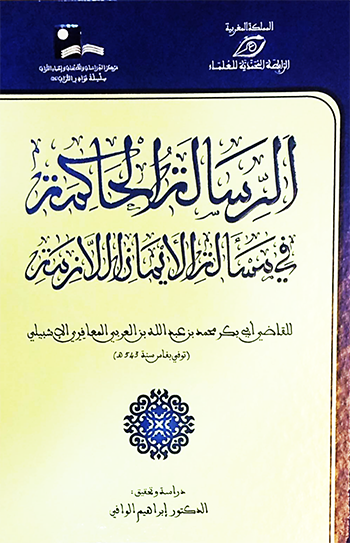 المملكة المغربية
الرابطة المحمدية للعلماء
مركز الدراسات والأبحاث وإحياء التراث
سلسلة نوادر التراث
الرسالة الحاكمة
في مسألة الأيمان اللازمة
للقاضي أبي بكر محمد بن عبد الله بن العربي المعافري الإشبيلي
(توفي بفاس سنة 543هـ)
دراسة وتحقيق:
الدكتور إبراهيم الوافي